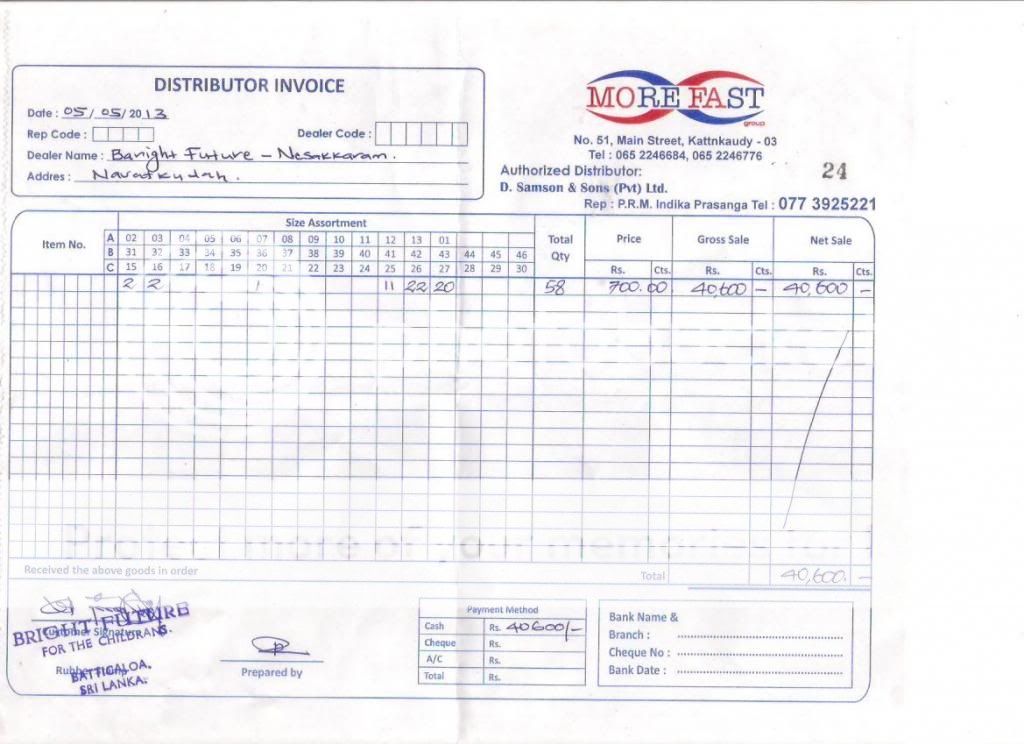 DISTRIBUTOR INVOICE
Date : 05/05/2013
Rep Code :
Dealer Code :
Dealer Name : Baright Future - Nesakkaram.
Addres : Navatkudah.
MORE FAST
group
No. 51, Main Street, Kattnkaudy - 03
Tel : 065 2246684, 065 2246776
Authorized Distributor:
24
D. Samson & Sons (Pvt) Ltd.
Rep : P.R.M. Indika Prasanga Tel : 077 3925221
Item No. Size Assortment Total Qty Price Gross Sale Net Sale
A 02 03 04 05 06 07 08 09 10 11 12 13 01
B 31 32 33 34 35 36 37 38 39 40 41 42 43 44 45 46
C 15 16 17 18 19 20 21 22 23 24 25 26 27 28 29 30
Rs. Cts. Rs. Cts. Rs. Cts.
2 2 1 11 22 20 58 700.00 40,600 - 40,600 -
Received the above goods in order
Total 40,600. -
BRIGHT FUTURE
Customer Signature
FOR THE CHILDRANS.
BATTICALOA.
SRI LANKA.
Prepared by
Payment Method
Cash Rs. 40600/-
Cheque Rs.
A/C Rs.
Total Rs.
Bank Name &
Branch :
Cheque No :
Bank Date :